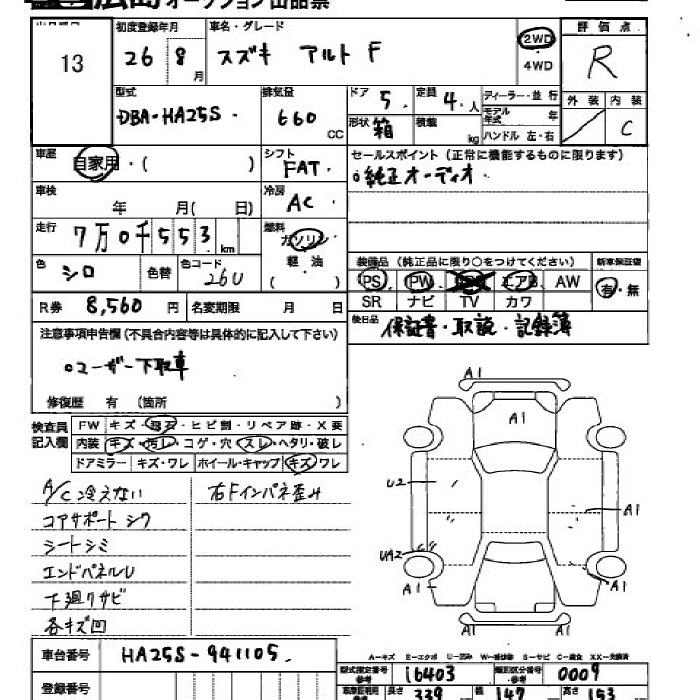 広島 オークション出品票
13
初度登録年月 26 8月
車名・グレード スズキ アルト F
2WD
4WD
評価点 R
型式 DBA-HA25S
排気量 660 CC
ドア 5 定員 4人
形状 箱 積載 kg
ディーラー・並行
モデル年式 年
ハンドル 左・右
外装 内装 C
車歴 自家用・( )
シフト FAT
セールスポイント(正常に機能するものに限ります)
純正オーディオ
車検 年 月( 日)
冷房 AC
走行 7万0千553km
燃料 ガソリン 軽油 ( )
色 シロ 色替 色コード 26U
装備品(純正品に限り○をつけてください) 新車保証書
PS PW エアB AW 有・無
SR ナビ TV カワ
R券 8,560円 名変期限 月 日
後日品 保証書・取説・記録簿
注意事項申告欄(不具合内容等は具体的に記入して下さい)
ユーザー下取車
修復歴 有 (箇所 )
検査員記入欄
FW キズ・飛石・ヒビ割・リペア跡・X要
内装 キズ・汚レ・コゲ・穴・スレ・ヘタリ・破レ
ドアミラー キズ・ワレ ホイール・キャップ キズ・ワレ
A/C冷えない 右Fインパネ歪み
コアサポート シワ
シートシミ
エンドパネルU
下廻りサビ
各キズ凹
A1
A1
U2
A1
UA2
A1
A1
A1
A-キズ E-エクボ U-凹み W-補修跡 S-サビ C-腐食 XX-交換済
車台番号 HA25S-941105
型式指定番号 参考 16403 類別区分番号 参考 0009
登録番号
長さ 339 幅 147 高さ 153